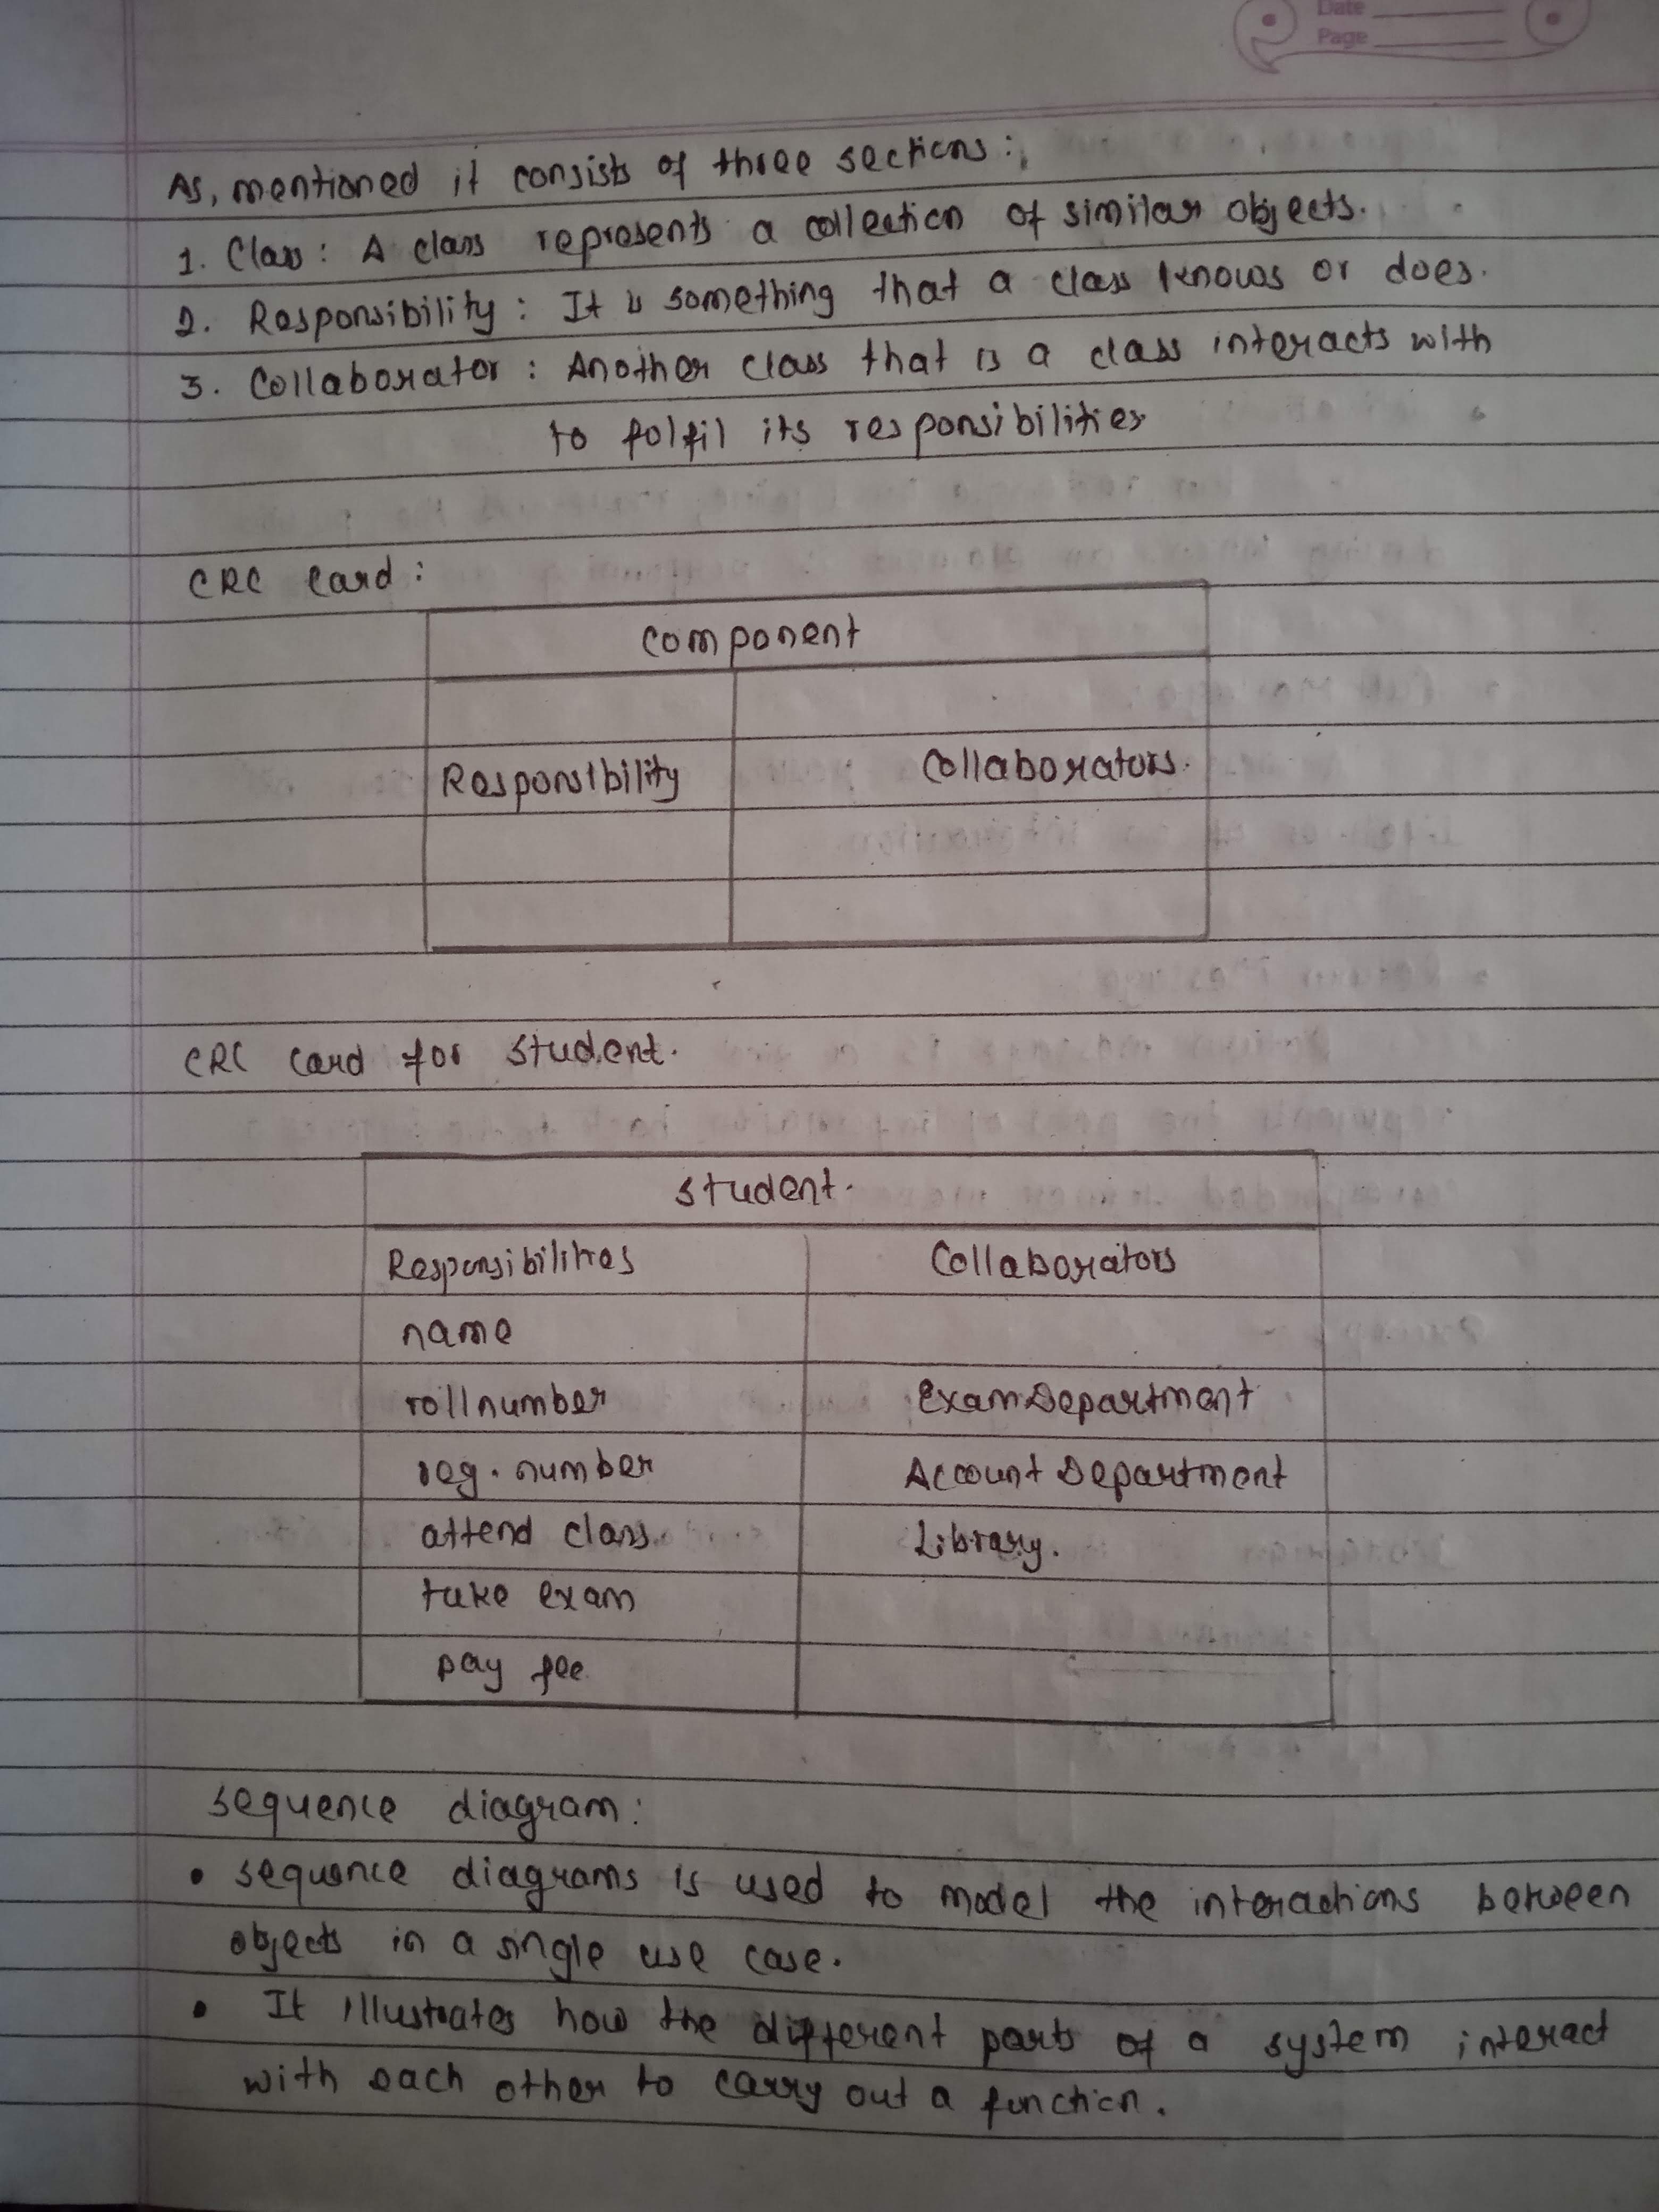 Date
Page
As, mentioned it consists of three sections:
1. Class: A class represents a collection of similar objects.
2. Responsibility: It is something that a class knows or does.
3. Collaborator: Another class that is a class interacts with
to folfil its responsibilities
CRC Card:
Component
Responsibility Collaborators.
CRC Card for student.
student.
Responsibilities Collaborators
name
rollnumber ExamDepartment
reg. number Account Department
attend class. Library.
take exam
pay fee
sequence diagram:
• sequence diagrams is used to model the interactions between
objects in a single use case.
• It illustrates how the different parts of a system interact
with each other to carry out a function.